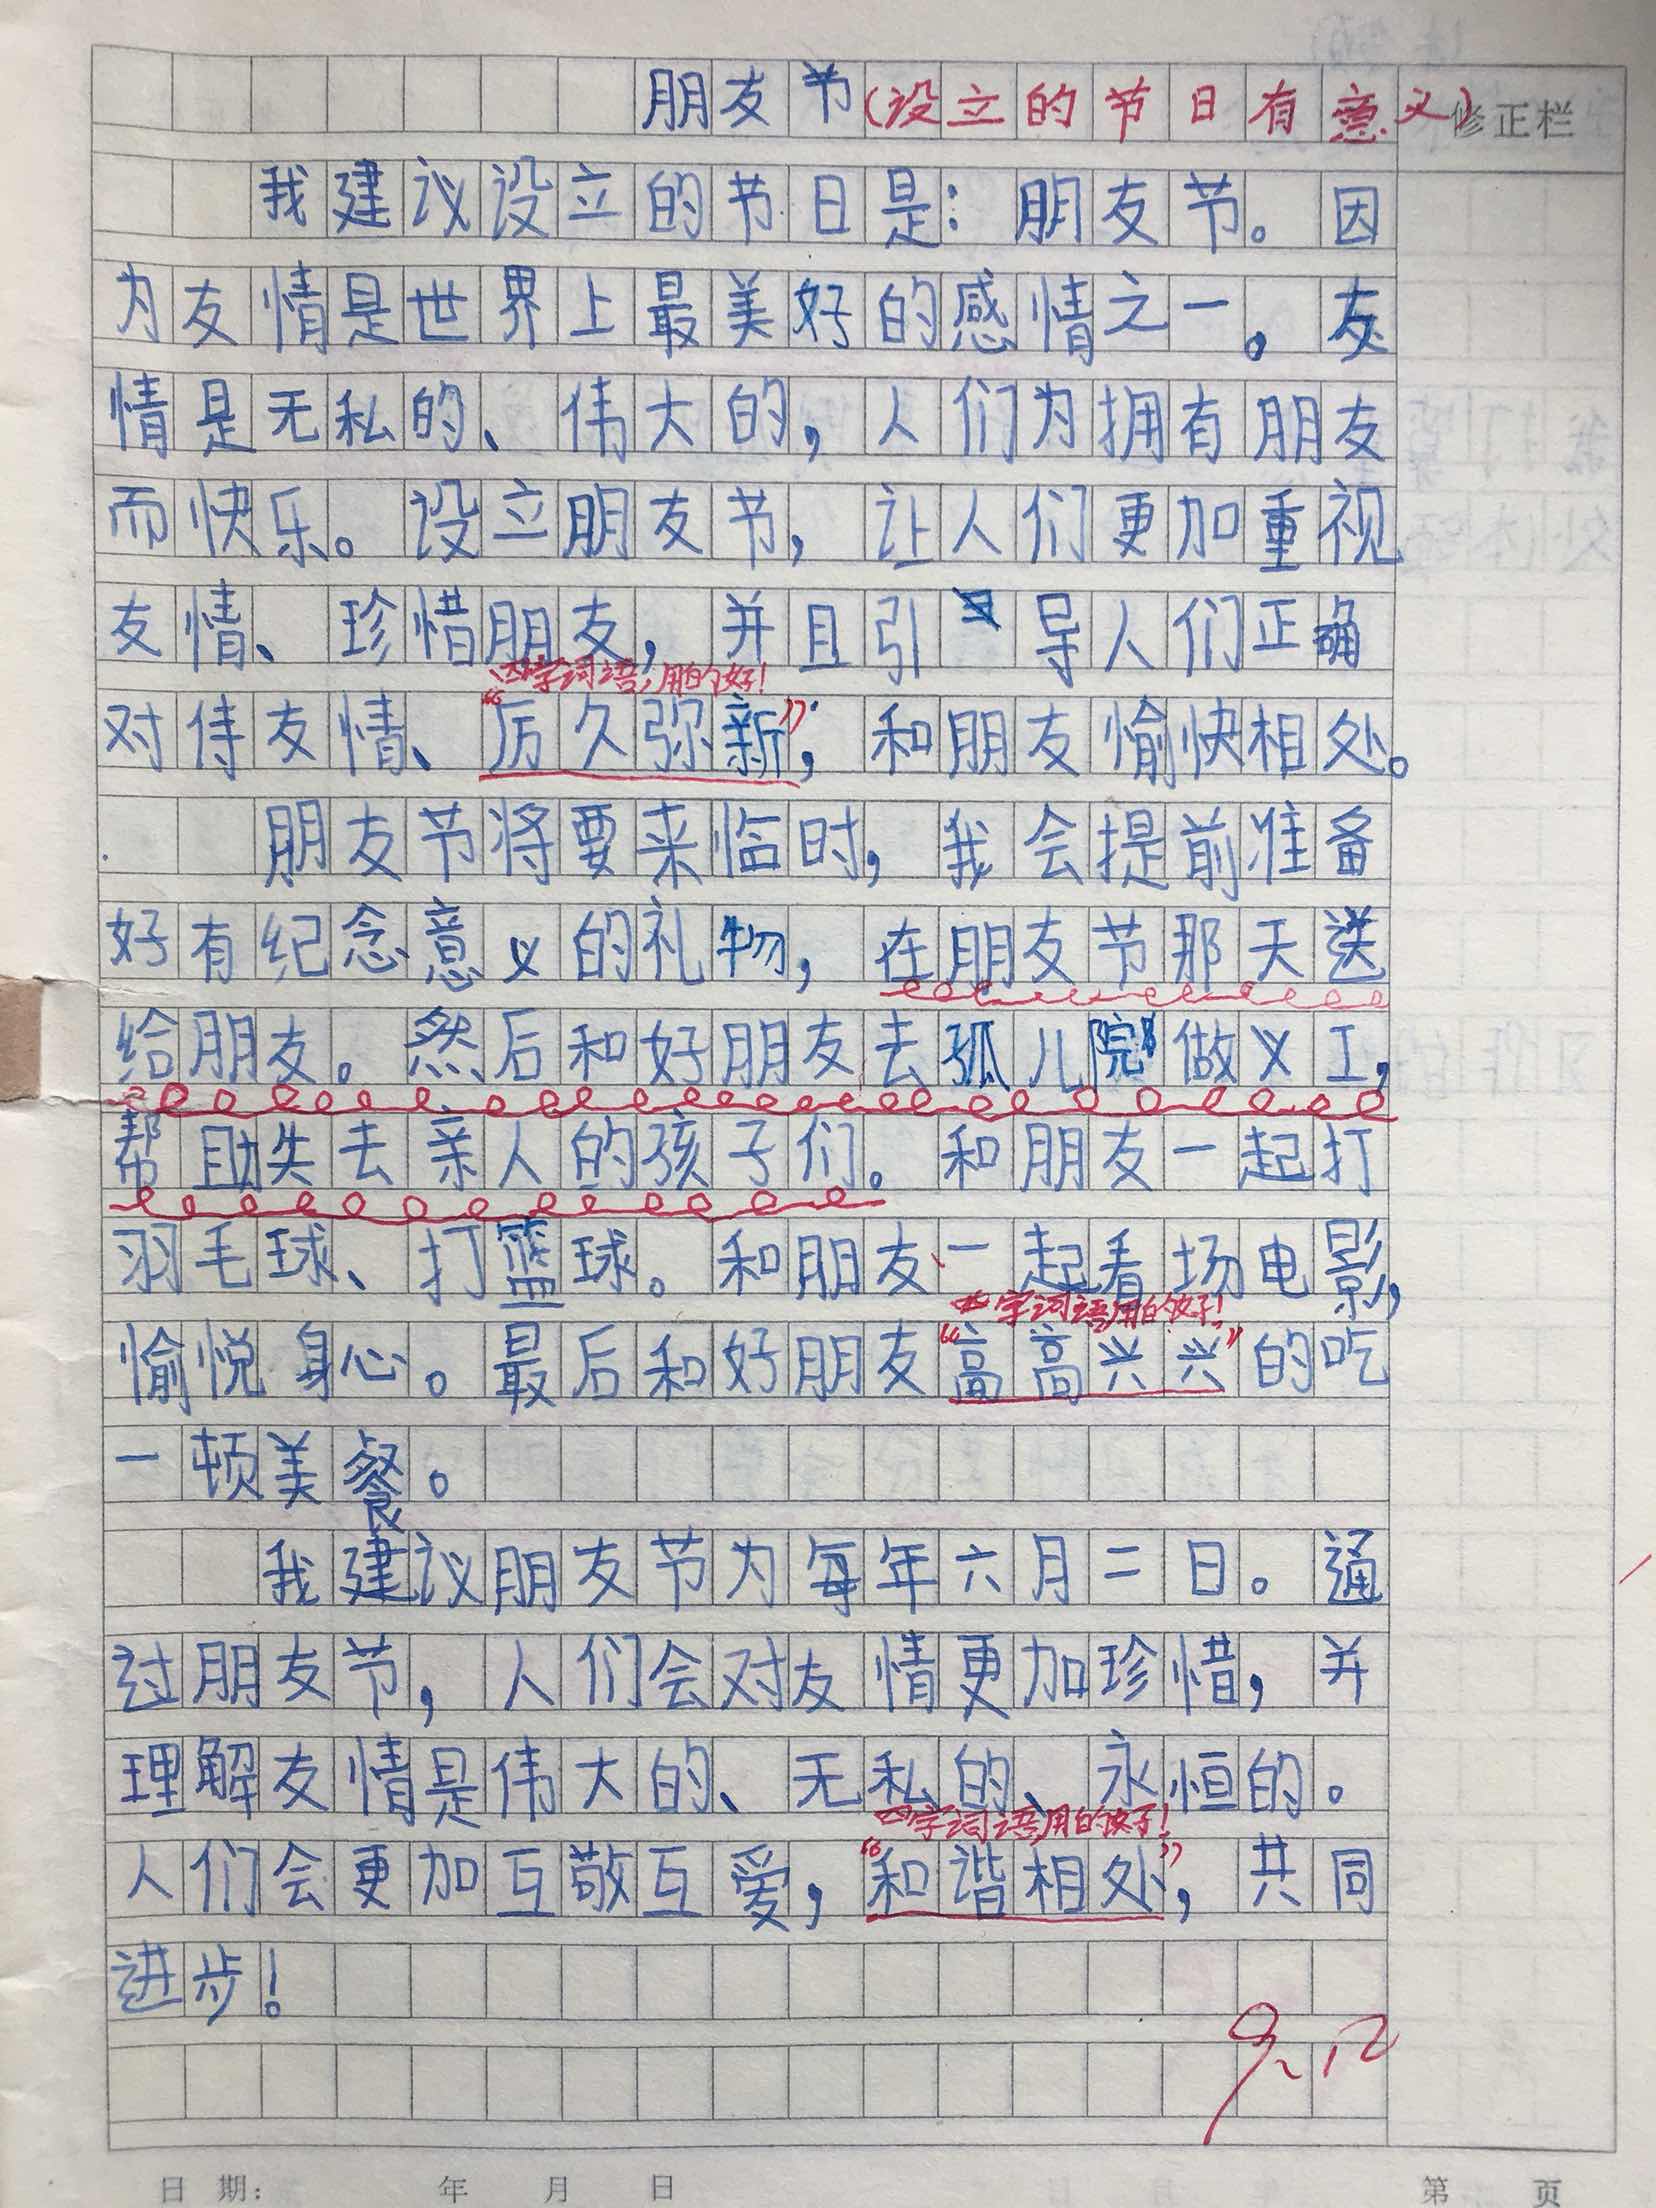 朋友节(设立的节日有意义)修正栏
我建议设立的节日是：朋友节。因
为友情是世界上最美好的感情之一。友
情是无私的、伟大的，人们为拥有朋友
而快乐。设立朋友节，让人们更加重视
友情、珍惜朋友，并且引导人们正确
四字词语，用的好！
对待友情、“厉久弥新”，和朋友愉快相处。
朋友节将要来临时，我会提前准备
好有纪念意义的礼物，在朋友节那天送
给朋友。然后和好朋友去孤儿院做义工，
帮助失去亲人的孩子们。和朋友一起打
羽毛球、打篮球。和朋友一起看场电影，
四字词语，用的好！
愉悦身心。最后和好朋友“高高兴兴”的吃
一顿美餐。
我建议朋友节为每年六月二日。通
过朋友节，人们会对友情更加珍惜，并
理解友情是伟大的、无私的、永恒的。
四字词语，用的好！
人们会更加互敬互爱，“和谐相处”，共同
进步！
9.12
日期： 年 月 日 第 页